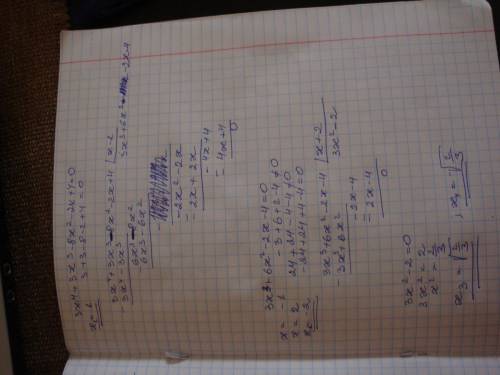 3x⁴+3x³-8x²-2x+4=0
3+3-8-2+4=0
x₁=1
3x³+6x²-2x-4
6x³-8x²
6x³-6x²
-2x²-2x
-2x²+2x
-4x+4
-4x+4
0
3x³+6x²-2x-4=0
x=-1 -3+6+2-4≠0
x=2 24+24-4-4≠0
x₂=-2 -24+24+4-4=0
3x³+6x²-2x-4 | x+2
-3x³+6x² 3x²-2
-2x-4
-2x-4
0
3x²-2=0
3x²=2
x²=2/3
x₃=√2/3 , x₄=-√2/3